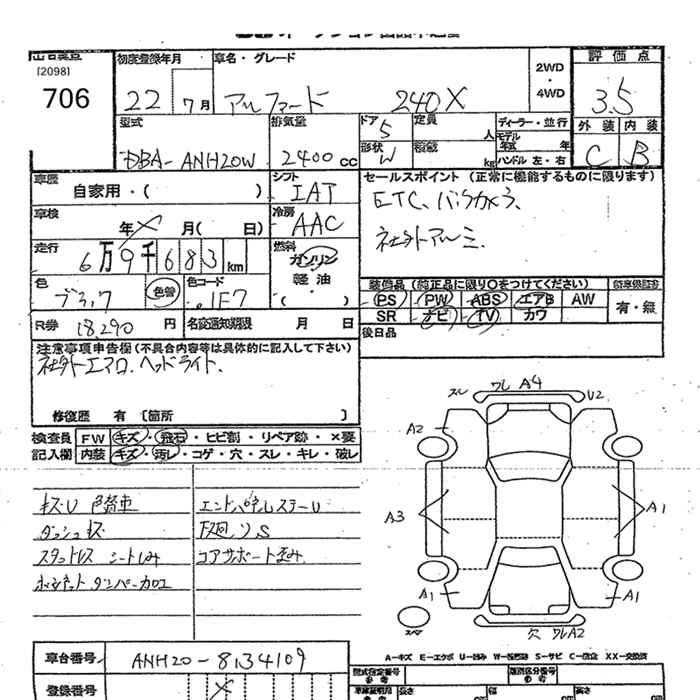 [2098]
706
初度登録年月 車名・グレード 2WD・4WD 評価点
22 7月 アルファード 240X 3.5
型式 排気量 ドア 定員 人 ディーラー・並行 外装 内装
DBA-ANH20W 2400cc 5 形状 W 積載 kg モデル年式 年 ハンドル 左・右 C B
車歴 自家用・( ) シフト IAT セールスポイント (正常に機能するものに限ります)
車検 年 月( 日) 冷房 AAC ETC、バックカメラ、
走行 6万9千683km 燃料 ガソリン・軽油・( ) 社外アルミ
色 ブラック 色替 色コード 1F7
装備品 (純正品に限り○をつけてください)
PS PW ABS エアB AW 有・無
SR ナビ TV カワ
R券 18,290円 名変通知期限 月 日 後日品
注意事項申告欄(不具合内容等は具体的に記入して下さい)
社外エアロ、ヘッドライト、
修復歴 有 [箇所 ]
検査員 FW キズ・飛石・ヒビ割・リペア跡・×要
記入欄 内装 キズ・汚レ・コゲ・穴・スレ・キレ・破レ
キズU 色替車 エンドパネルステーU
ダッシュキズ
シートしみ コアサポート歪み
スレ ワレ A4 U2
A2
A3 A1
A1 A1
スペア 欠 ワレA2
A-キズ E-エクボ U-凹み W-補修跡 S-サビ C-腐食 XX-交換済
車台番号 ANH20-8134109
登録番号
型式指定番号 参考 類別区分番号 参考